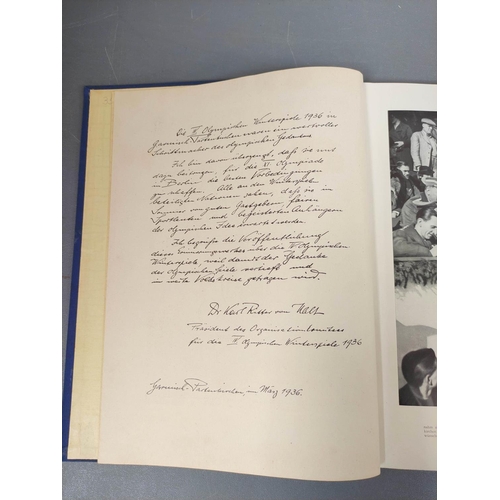 Die IV. Olympischen Winterspiele 1936 in
Garmisch-Partenkirchen waren ein wertvoller
Schrittmacher des olympischen Gedankens
Ich bin davon überzeugt, daß sie mit
dazu beitragen, für die XI. Olympiade
in Berlin die besten Vorbedingungen
zu schaffen. Alle an den Winterspielen
beteiligten Nationen sahen, daß sie im
Sommer von guten Gastgebern, fairen
Sportleuten und begeisterten Anhängern
der olympischen Idee
Ich begrüße die Veröffentlichung
dieses Erinnerungswerkes über die IV. Olympischen
Winterspiele, weil damit der Gedanke
der Olympischen Spiele vertieft und
in weite Volkskreise getragen wird.
Dr. Karl Ritter von Halt
Präsident des Organisationskomitees
für die IV. Olympischen Winterspiele 1936
Garmisch-Partenkirchen, im März 1936.